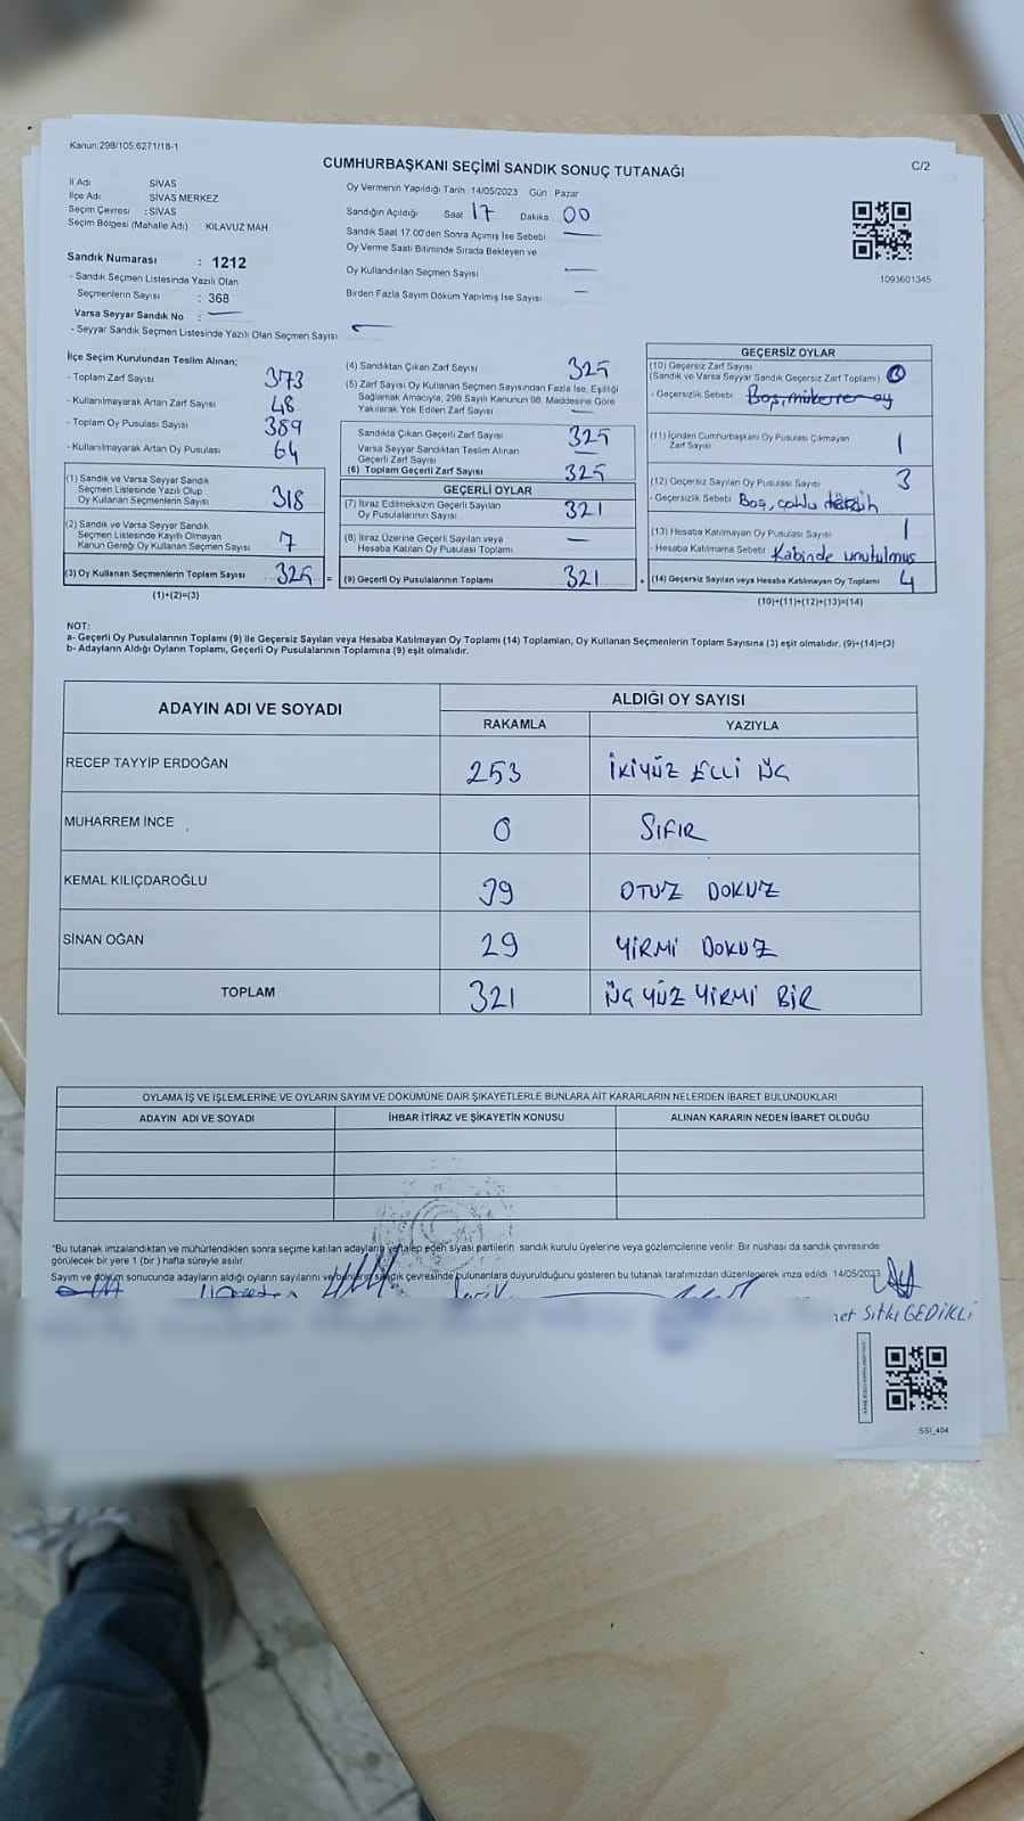 Kanun:298/105;6271/18-1
CUMHURBAŞKANI SEÇİMİ SANDIK SONUÇ TUTANAĞI
C/2
İl Adı SİVAS
İlçe Adı SİVAS MERKEZ
Seçim Çevresi : SİVAS
Seçim Bölgesi (Mahalle Adı) KILAVUZ MAH
Sandık Numarası : 1212
- Sandık Seçmen Listesinde Yazılı Olan
Seçmenlerin Sayısı : 368
Varsa Seyyar Sandık No : —
- Seyyar Sandık Seçmen Listesinde Yazılı Olan Seçmen Sayısı —
Oy Vermenin Yapıldığı Tarih 14/05/2023 Gün Pazar
Sandığın Açıldığı Saat 17 Dakika 00
Sandık Saat 17.00'den Sonra Açımış İse Sebebi —
Oy Verme Saati Bitiminde Sırada Bekleyen ve
Oy Kullandırılan Seçmen Sayısı —
Birden Fazla Sayım Döküm Yapılmış İse Sayısı —
1093601345
İlçe Seçim Kurulundan Teslim Alınan;
- Toplam Zarf Sayısı 373
- Kullanılmayarak Artan Zarf Sayısı 48
- Toplam Oy Pusulası Sayısı 389
- Kullanılmayarak Artan Oy Pusulası 64
(1) Sandık ve Varsa Seyyar Sandık
Seçmen Listesinde Yazılı Olup
Oy Kullanan Seçmenlerin Sayısı 318
(2) Sandık ve Varsa Seyyar Sandık
Seçmen Listesinde Kayıtlı Olmayan
Kanun Gereği Oy Kullanan Seçmen Sayısı 7
(3) Oy Kullanan Seçmenlerin Toplam Sayısı 325 =
(1)+(2)=(3)
(4) Sandıktan Çıkan Zarf Sayısı 325
(5) Zarf Sayısı Oy Kullanan Seçmen Sayısından Fazla İse, Eşitliği
Sağlamak Amacıyla, 298 Sayılı Kanunun 98. Maddesine Göre
Yakılarak Yok Edilen Zarf Sayısı —
Sandıkta Çıkan Geçerli Zarf Sayısı 325
Varsa Seyyar Sandıktan Teslim Alınan
Geçerli Zarf Sayısı —
(6) Toplam Geçerli Zarf Sayısı 325
GEÇERLİ OYLAR
(7) İtiraz Edilmeksizin Geçerli Sayılan
Oy Pusulalarının Sayısı 321
(8) İtiraz Üzerine Geçerli Sayılan veya
Hesaba Katılan Oy Pusulası Toplamı —
(9) Geçerli Oy Pusulalarının Toplamı 321
GEÇERSİZ OYLAR
(10) Geçersiz Zarf Sayısı
(Sandık ve Varsa Seyyar Sandık Geçersiz Zarf Toplamı)
- Geçersizlik Sebebi Boş, mükerrer oy
(11) İçinden Cumhurbaşkanı Oy Pusulası Çıkmayan
Zarf Sayısı 1
(12) Geçersiz Sayılan Oy Pusulası Sayısı 3
- Geçersizlik Sebebi Boş, çoklu tercih
(13) Hesaba Katılmayan Oy Pusulası Sayısı 1
- Hesaba Katılmama Sebebi Kabinde unutulmuş
(14) Geçersiz Sayılan veya Hesaba Katılmayan Oy Toplamı 4
(10)+(11)+(12)+(13)=(14)
NOT:
a- Geçerli Oy Pusulalarının Toplamı (9) ile Geçersiz Sayılan veya Hesaba Katılmayan Oy Toplamı (14) Toplamları, Oy Kullanan Seçmenlerin Toplam Sayısına (3) eşit olmalıdır. (9)+(14)=(3)
b- Adayların Aldığı Oyların Toplamı, Geçerli Oy Pusulalarının Toplamına (9) eşit olmalıdır.
ADAYIN ADI VE SOYADI
ALDIĞI OY SAYISI
RAKAMLA YAZIYLA
RECEP TAYYİP ERDOĞAN 253 İKİYÜZ ELLİ ÜÇ
MUHARREM İNCE 0 SIFIR
KEMAL KILIÇDAROĞLU 39 OTUZ DOKUZ
SİNAN OĞAN 29 YİRMİ DOKUZ
TOPLAM 321 ÜÇ YÜZ YİRMİ BİR
OYLAMA İŞ VE İŞLEMLERİNE VE OYLARIN SAYIM VE DÖKÜMÜNE DAİR ŞİKAYETLERLE BUNLARA AİT KARARLARIN NELERDEN İBARET BULUNDUKLARI
ADAYIN ADI VE SOYADI İHBAR İTİRAZ VE ŞİKAYETİN KONUSU ALINAN KARARIN NEDEN İBARET OLDUĞU
*Bu tutanak imzalandıktan ve mühürlendikten sonra seçime katılan adayların ve talep eden siyasi partilerin sandık kurulu üyelerine veya gözlemcilerine verilir. Bir nüshası da sandık çevresinde
görülecek bir yere 1 (bir) hafta süreyle asılır.
Sayım ve döküm sonucunda adayların aldığı oyların sayılarını ve bunların sandık çevresinde bulunanlara duyurulduğunu gösteren bu tutanak tarafımızdan düzenlenerek imza edildi. 14/05/2023
Sıtkı GEDİKLİ
SSI_404